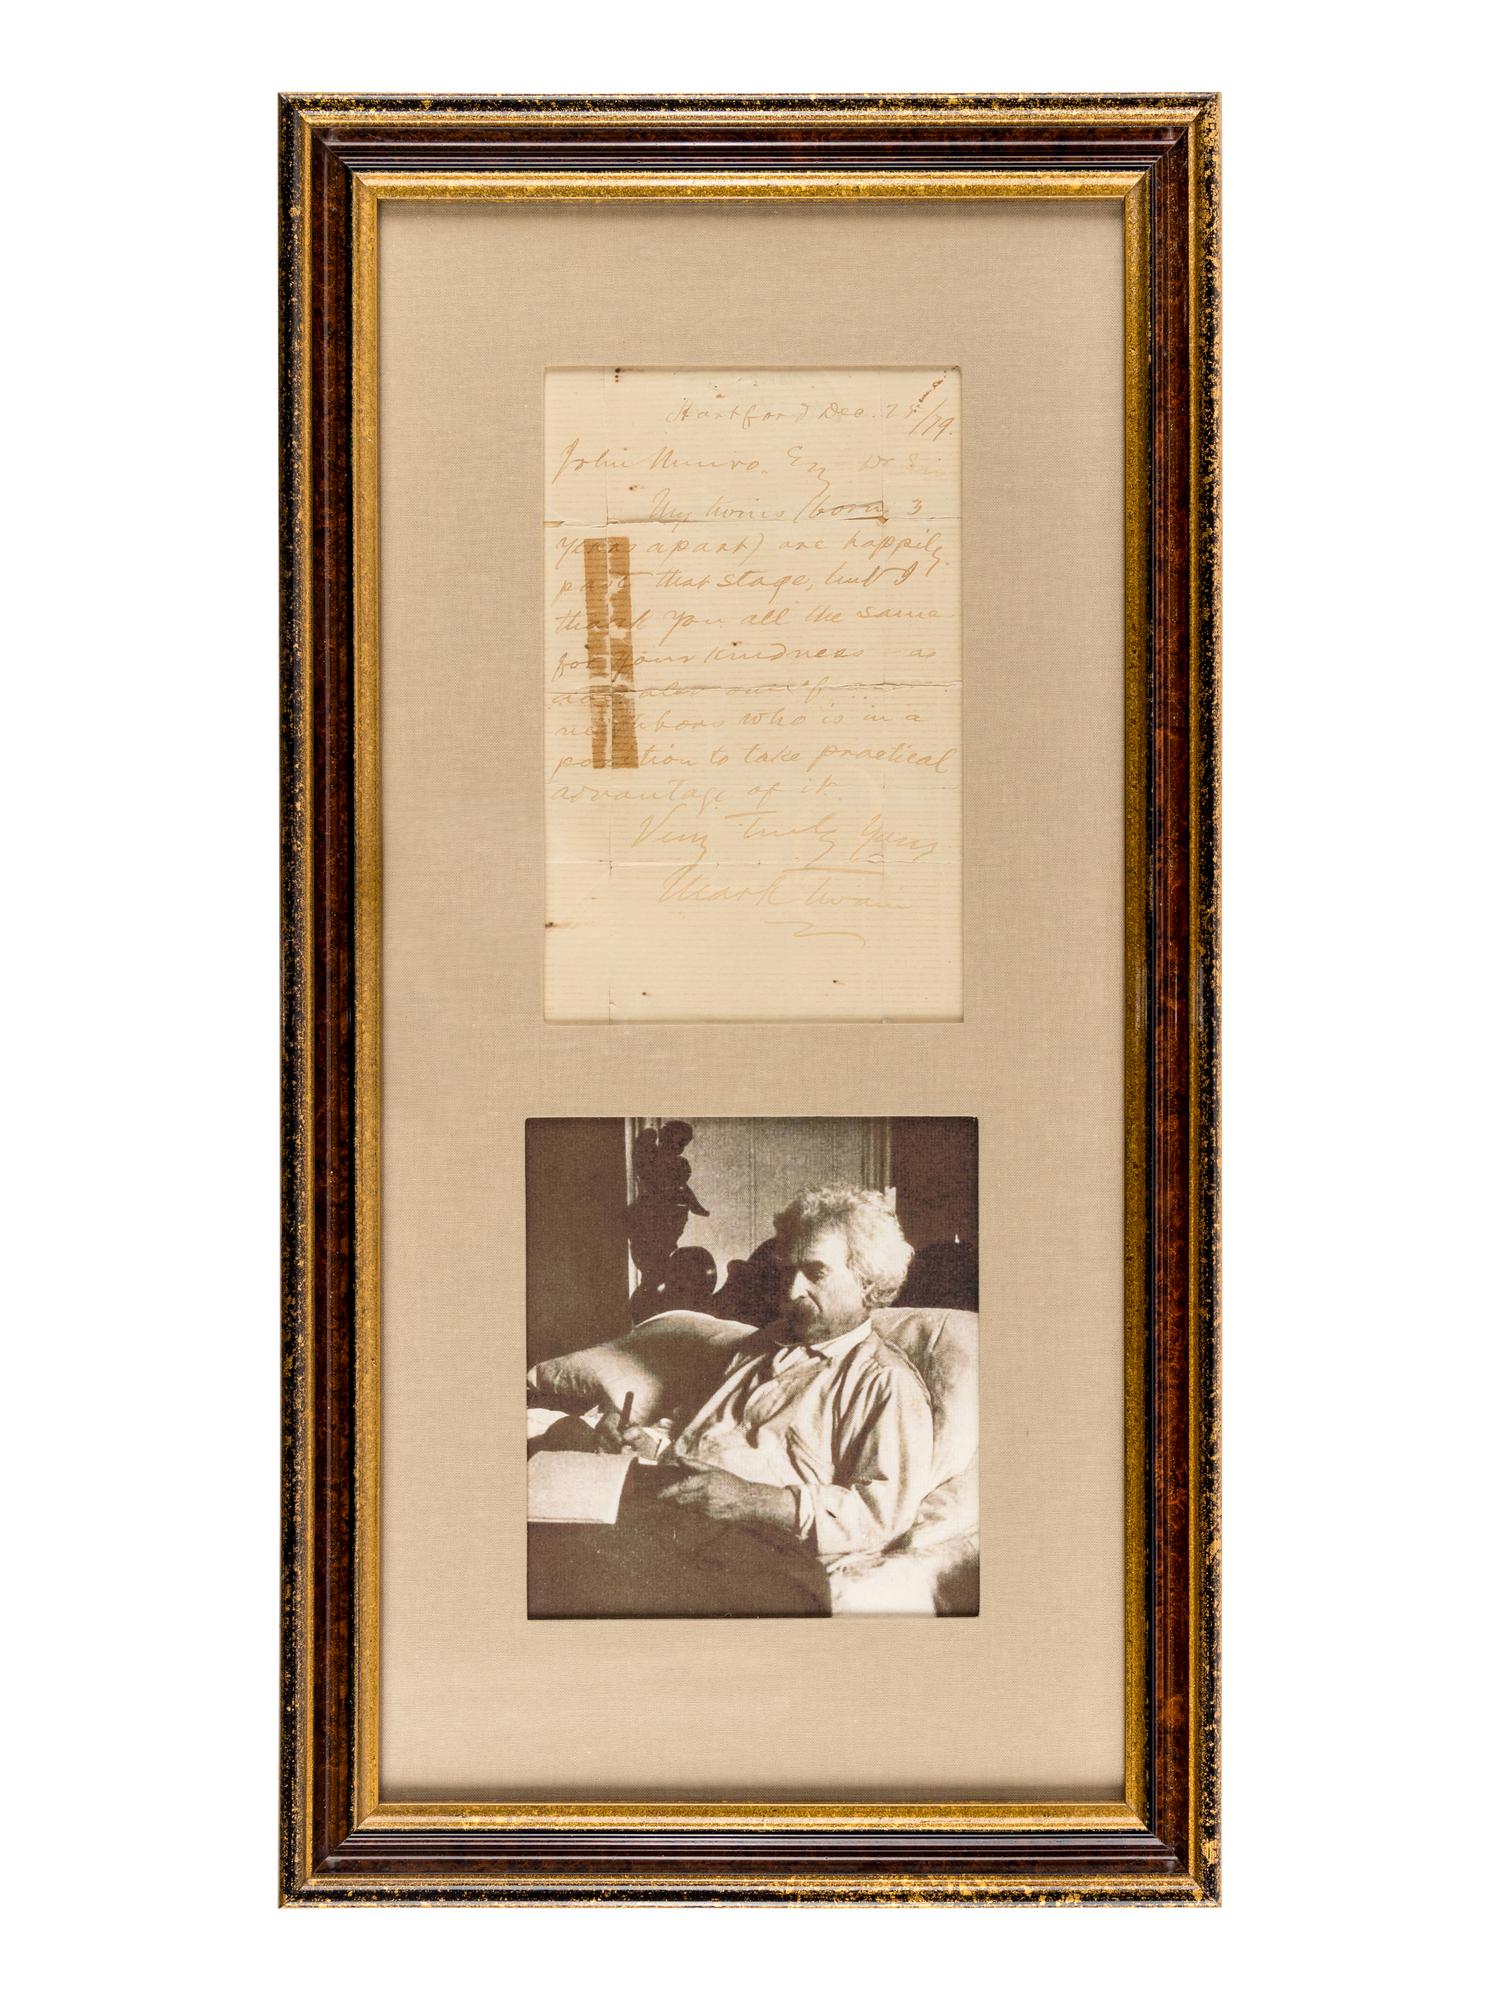 Hartford Dec. /79.
John Munro. Esq Dr Sir
My twins (born 3
years apart) are happily
past that stage, but I
thank you all the same
for your kindness — as
does also one of our
neighbors who is in a
position to take practical
advantage of it.
Very Truly Yours
Mark Twain